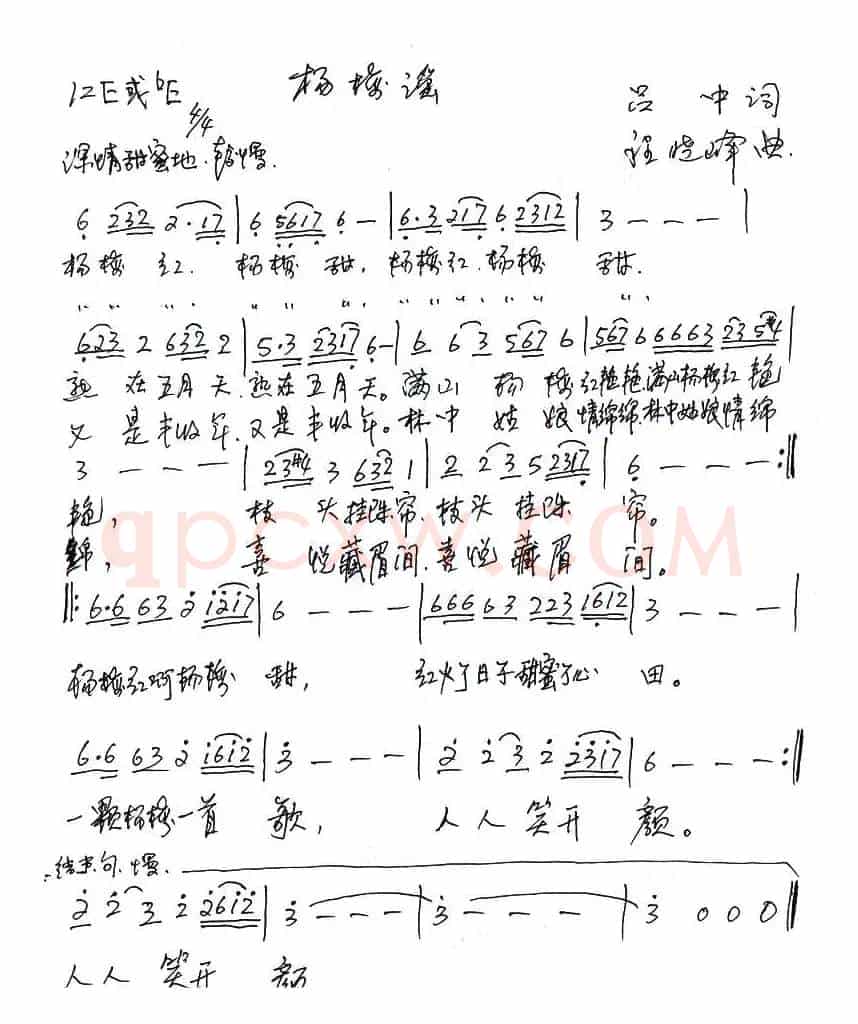 杨梅谣
1=E或♭E 4/4
吕 中词
深情甜蜜地.稍慢.
程晓峰曲.
6̣ 232 2·17̣ | 6̣ 5̣6̣17̣ 6̣ — | 6̣·3 217̣ 6̣ 2312 | 3 — — — |
杨梅 红. 杨梅 甜, 杨梅红.杨梅 甜.
" " " . " " " . " " " " " " .
6̣23 2 632 2 | 5·3 2317̣ 6̣ — | 6 6 3 567 6 | 567 6 6663 23 5#4 |
熟 在五月天.熟在五月天。满山 杨 梅红艳艳.满山杨梅红艳
又 是丰收年.又是丰收年。林中 姑 娘情绵绵.林中姑娘情绵
3 — — — | 23#4 3 632 1 | 2 2 3 5 2317̣ | 6̣ — — — :‖
艳, 枝 头挂珠帘.枝头 挂珠 帘。
绵, 喜 悦藏眉间.喜悦 藏眉 间。
qpcxw.com
‖: 6·6 63 2̇ 1̇2̇1̇7 | 6 — — — | 666 63 223 16̣12 | 3 — — — |
杨梅红啊杨梅 甜, 红火了日子甜蜜了心 田。
6·6 63 2̇ 1̇61̇2̇ | 3̇ — — — | 2̇ 2̇ 3̇ 2̇ 2̇3̇1̇7 | 6 — — — :‖
一颗杨梅一首 歌, 人人 笑开 颜。
结束句.慢.
2̇ 2̇ 3 2̇ 2̇61̇2̇ | 3̇ — — — | 3̇ — — — | 3̇ 0 0 0 ‖
人人 笑开 颜